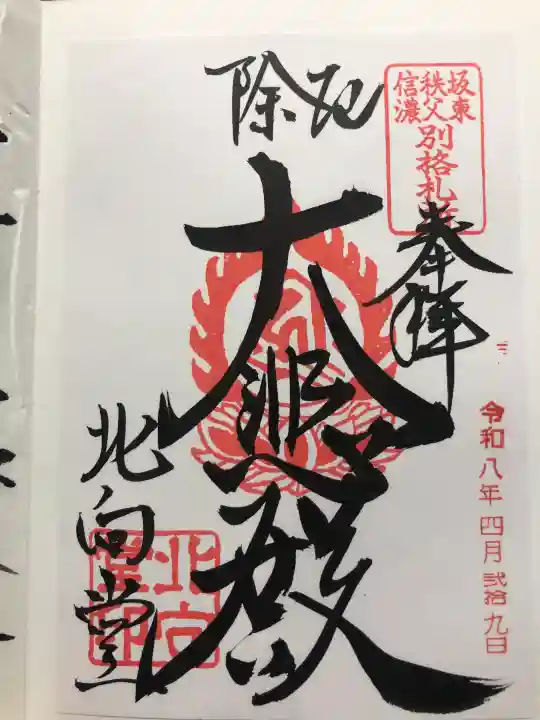 坂東
秩父
信濃
別格札所
奉拝
令和八年四月弐拾九日
厄除
大悲殿
北向堂